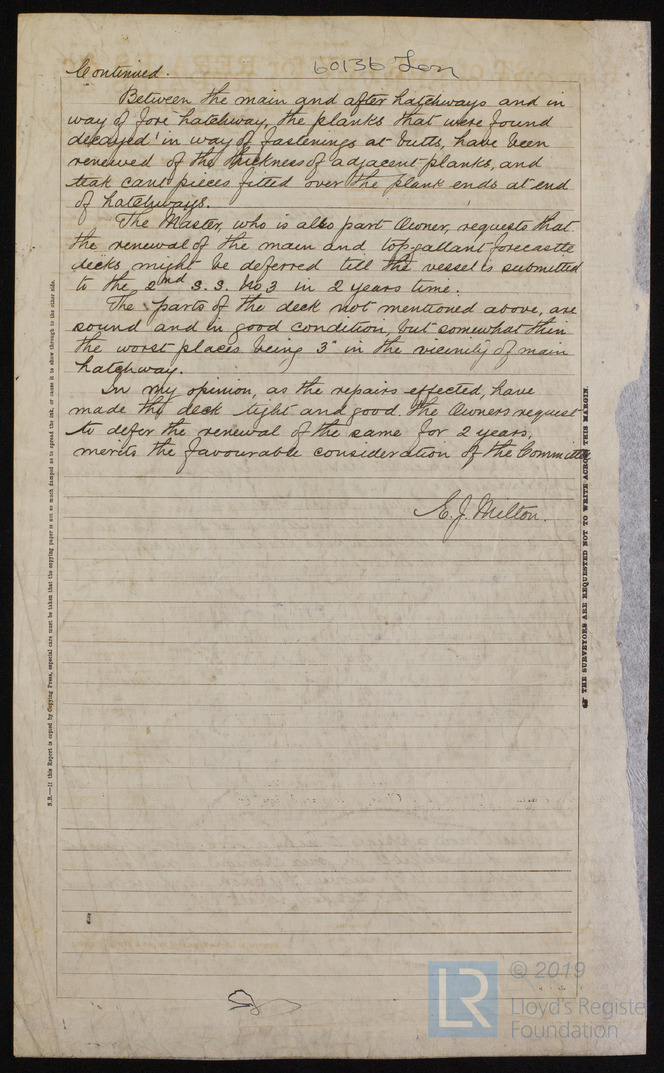 Continued.
60136 Lon
Between the main and after hatchways and in
way of fore hatchway, the planks that were found
decayed in way of fastenings at butts, have been
renewed of the thickness of adjacent planks, and
teak cant pieces fitted over the plank ends at end
of hatchways.
The Master, who is also part Owner, requests that
the renewal of the main and topgallant forecastle
decks might be deferred till the vessel is submitted
to the 2nd S.S. No 3 in 2 years time.
The parts of the deck not mentioned above, are
sound and in good condition, but somewhat thin
the worst places being 3" in the vicinity of main
hatchway.
In my opinion, as the repairs effected, have
made the deck tight and good. The Owners request
to defer the renewal of the same for 2 years,
merits the favourable consideration of the Committee
E. J. Milton.
N.B.—If this Report is copied by Copying Press, especial care must be taken that the copying paper is not so much damped as to spread the ink, or cause it to show through to the other side.
THE SURVEYORS ARE REQUESTED NOT TO WRITE ACROSS THIS MARGIN.
LR
© 2019
Lloyd's Register
Foundation